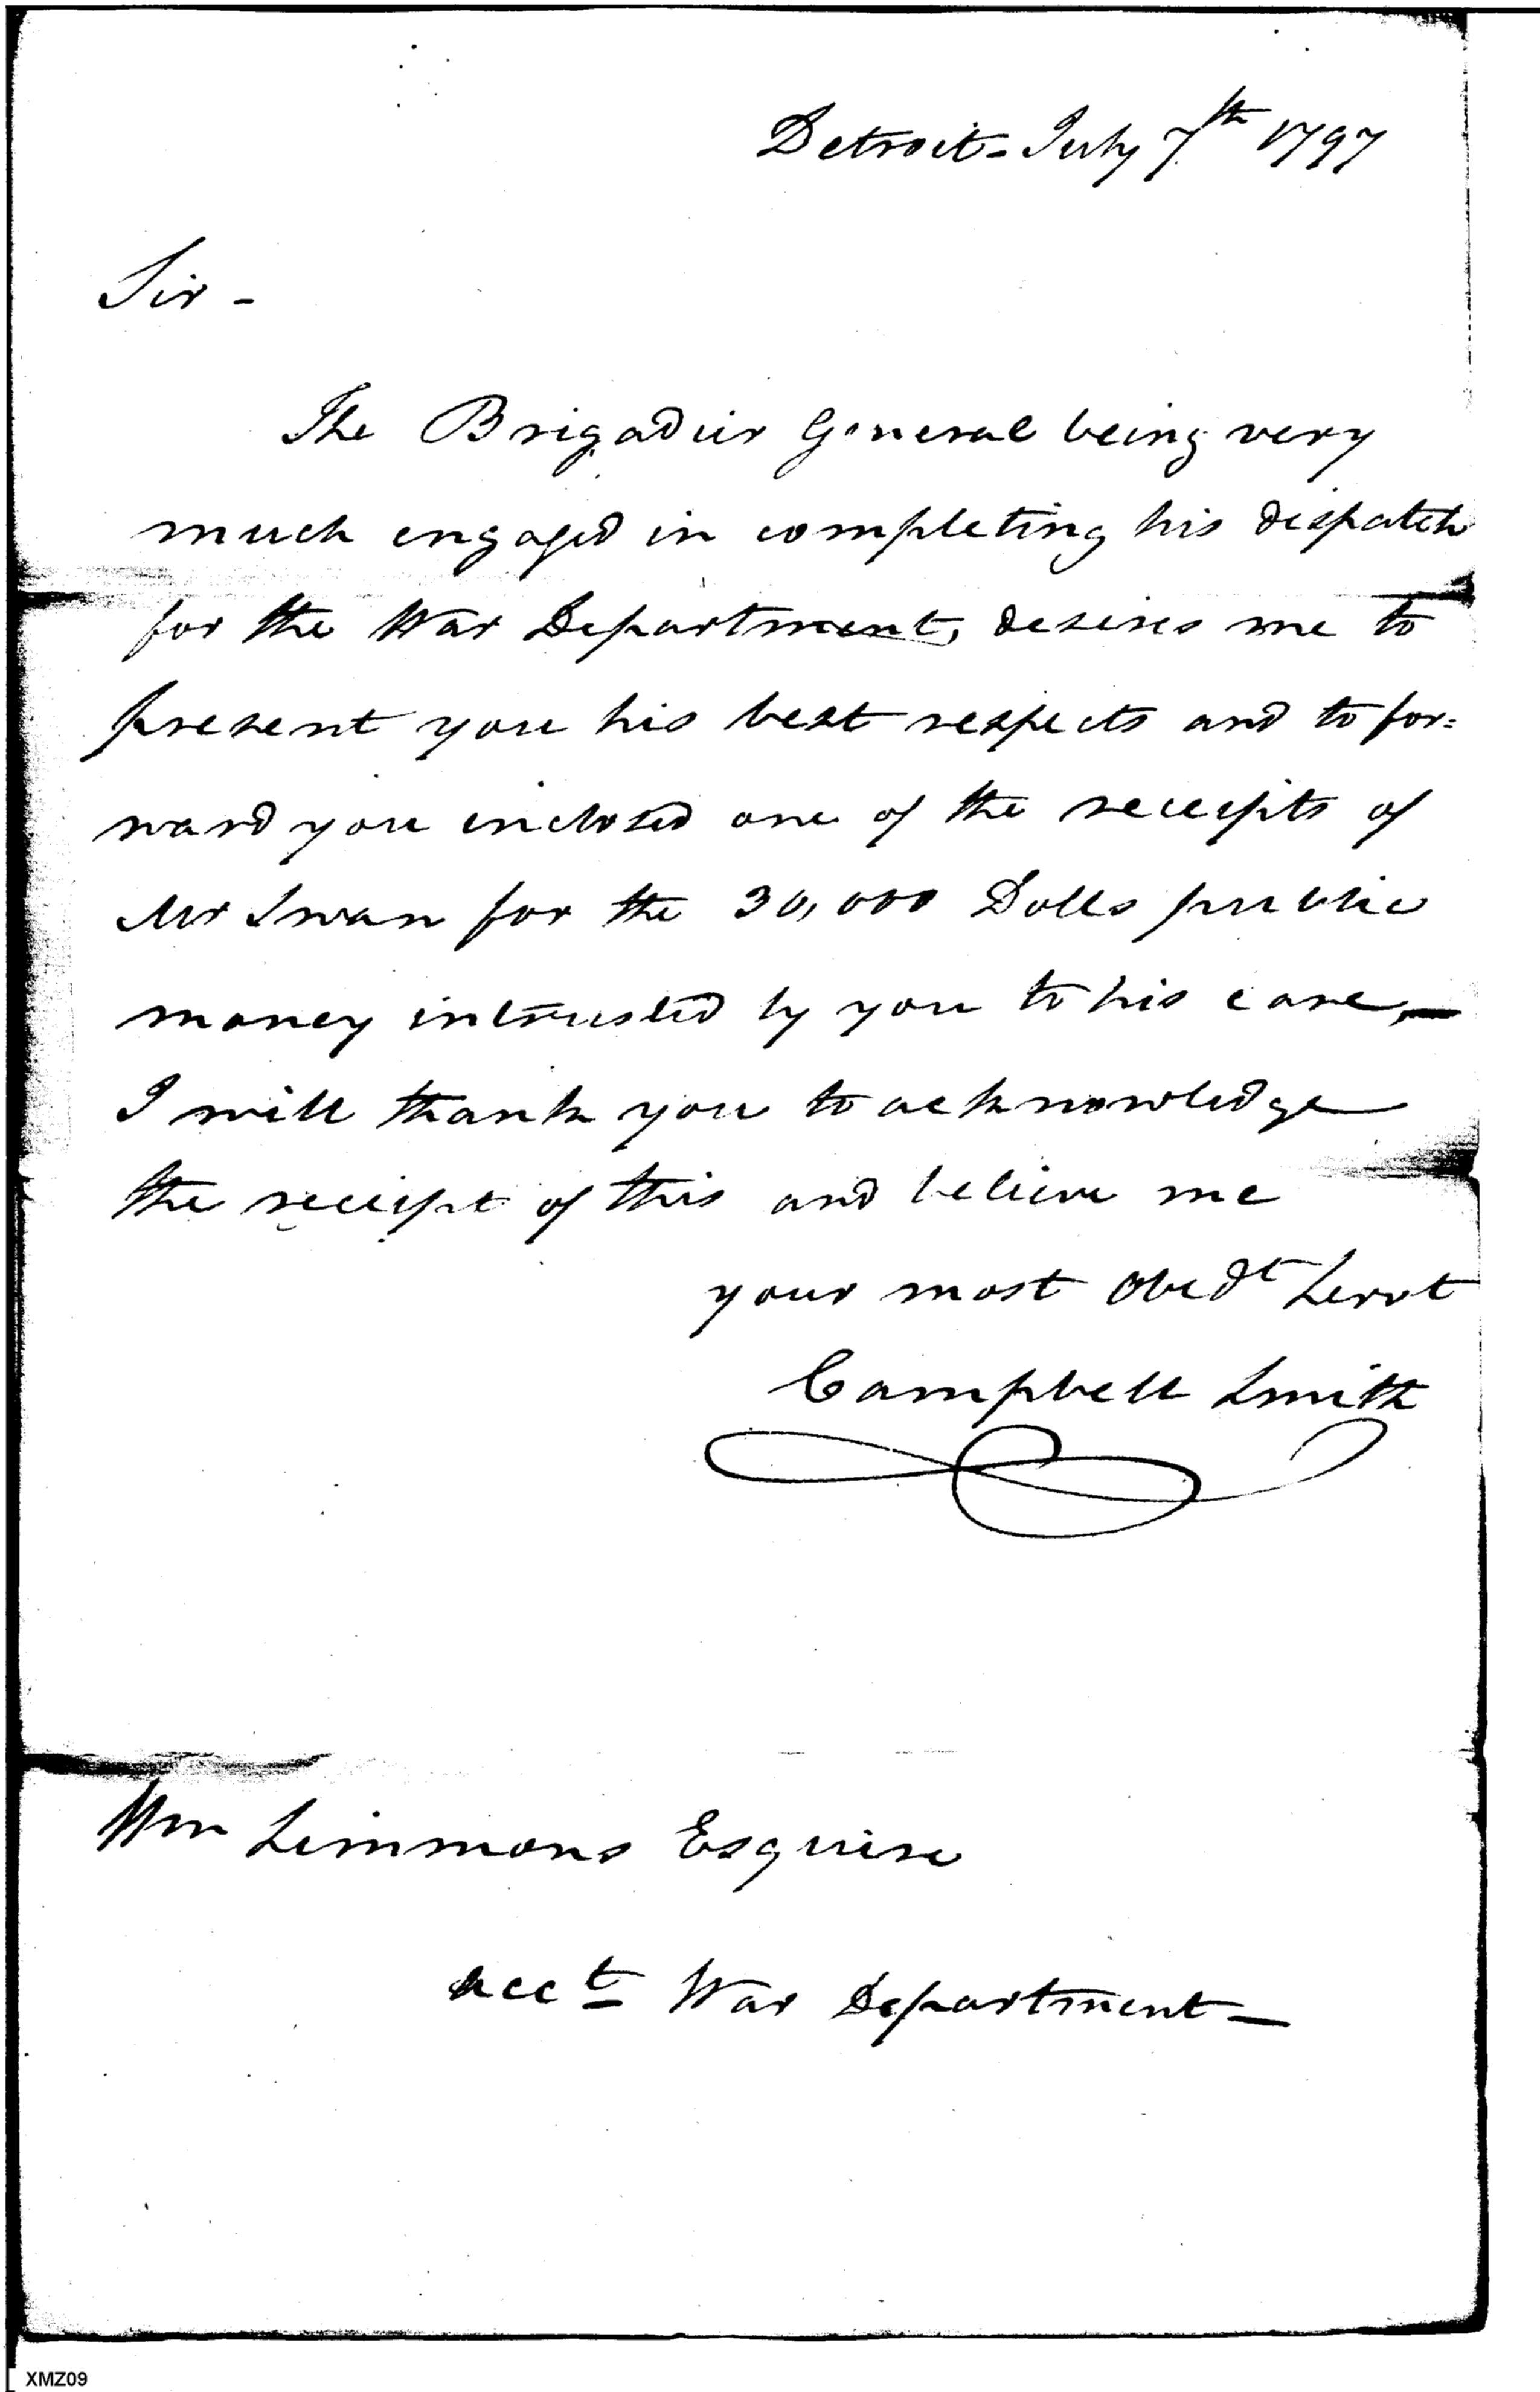 Detroit - July 7th 1797
Sir -
The Brigadier General being very
much engaged in completing his dispatch
for the War Department, desires me to
present you his best respects and to for=
ward you inclosed one of the receipts of
Mr Swan for the 30,000 Dolls public
money intrusted by you to his care, —
I will thank you to acknowledge
the receipt of this and believe me
your most Obedt Servt
Campbell Smith
Wm Simmons Esquire
Acct War Department —
XMZ09